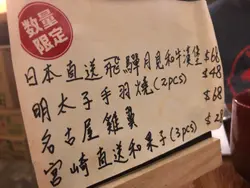 數量
限定
日本直送飛驒月見和牛漢堡 $68
明太子手羽燒(2pcs) $48
名古屋雞翼 $68
宮崎直送和果子(3pcs) $28